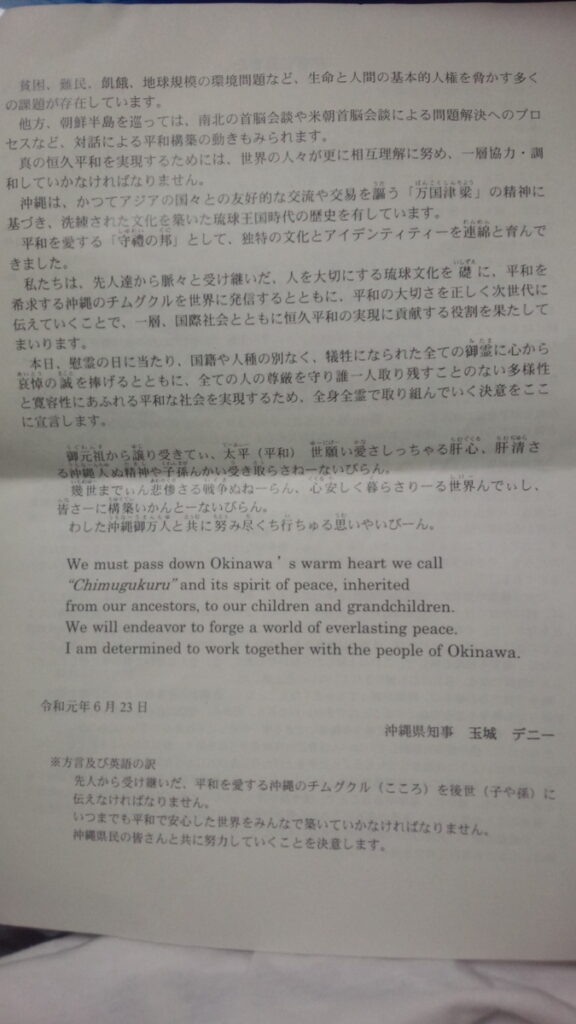 貧困、難民、飢餓、地球規模の環境問題など、生命と人間の基本的人権を脅かす多く
の課題が存在しています。
他方、朝鮮半島を巡っては、南北の首脳会談や米朝首脳会談による問題解決へのプロ
セスなど、対話による平和構築の動きもみられます。
真の恒久平和を実現するためには、世界の人々が更に相互理解に努め、一層協力・調
和していかなければなりません。
沖縄は、かつてアジアの国々との友好的な交流や交易を謳う「万国津梁」の精神に
基づき、洗練された文化を築いた琉球王国時代の歴史を有しています。
平和を愛する「守禮の邦」として、独特の文化とアイデンティティーを連綿と育んで
きました。
私たちは、先人達から脈々と受け継いだ、人を大切にする琉球文化を礎に、平和を
希求する沖縄のチムグクルを世界に発信するとともに、平和の大切さを正しく次世代に
伝えていくことで、一層、国際社会とともに恒久平和の実現に貢献する役割を果たして
まいります。
本日、慰霊の日に当たり、国籍や人種の別なく、犠牲になられた全ての御霊に心から
哀悼の誠を捧げるとともに、全ての人の尊厳を守り誰一人取り残すことのない多様性
と寛容性にあふれる平和な社会を実現するため、全身全霊で取り組んでいく決意をここ
に宣言します。
御元祖から譲り受きてぃ、太平(平和)世願い愛さしっちゃる肝心、肝清さ
る沖縄人ぬ精神や子孫んかい受き取らさねーないびらん。
幾世までぃん悲惨さる戦争ぬねーらん、心安しく暮らさりーる世界んでぃし、
皆さーに構築いかんとーないびらん。
わした沖縄御万人と共に努み尽くち行ちゅる思いやいびーん。
We must pass down Okinawa's warm heart we call
“Chimugukuru” and its spirit of peace, inherited
from our ancestors, to our children and grandchildren.
We will endeavor to forge a world of everlasting peace.
I am determined to work together with the people of Okinawa.
令和元年6月23日
沖縄県知事 玉城 デニー
※方言及び英語の訳
先人から受け継いだ、平和を愛する沖縄のチムグクル(こころ)を後世(子や孫)に
伝えなければなりません。
いつまでも平和で安心した世界をみんなで築いていかなければなりません。
沖縄県民の皆さんと共に努力していくことを決意します。